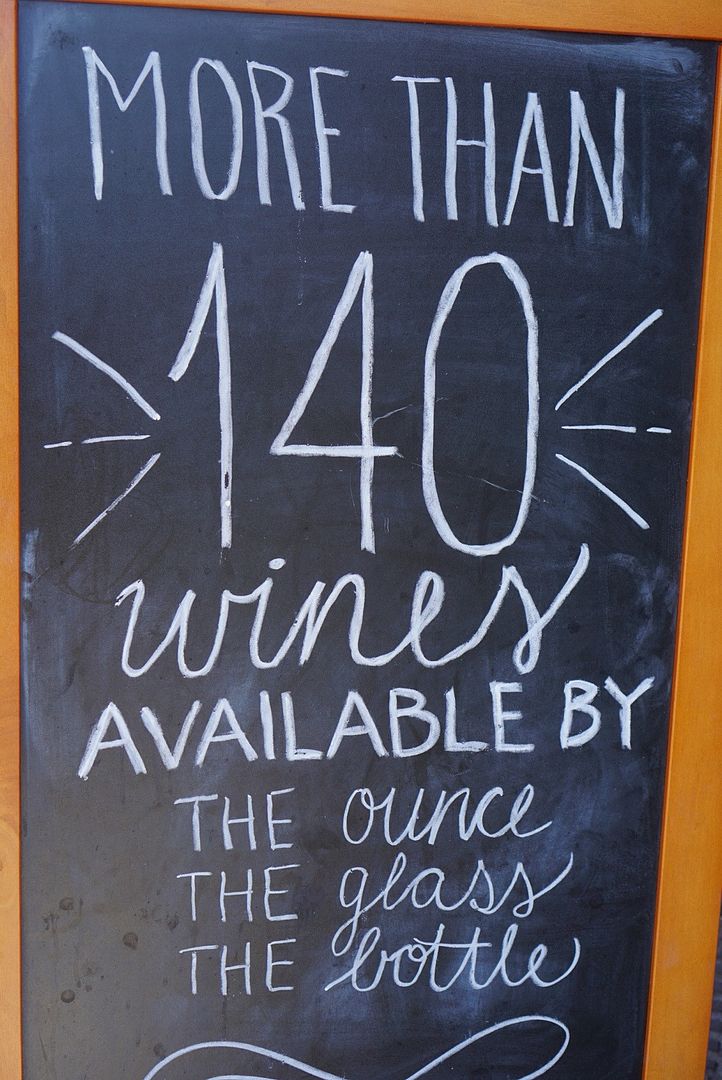 MORE THAN
140
wines
AVAILABLE BY
THE ounce
THE glass
THE bottle